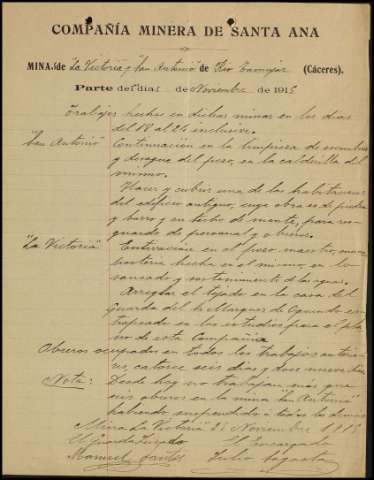 COMPAÑÍA MINERA DE SANTA ANA
MINA "La Victoria y San Antonio" de (Cáceres).
Parte del día de Noviembre de 1915
Trabajos hechos en dichas minas en los días
del 18 al 24 inclusive.
"San Antonio" Continuación en la limpieza de escombros
y desague del pozo, en la calderilla del
mismo.
Hacer y cubrir una de las habitaciones
del edificio antiguo, cuya obra es de piedra
y barro y un techo de monte, para res-
guardo de personal y obreros.
"La Victoria" en el pozo maestro,
hecha en el mismo, en lo
y sostenimiento de las aguas.
Arreglar el tejado en la casa del
Guarda del Marques de
en los estudios para el pla-
no de esta Compañía
Obreros ocupados en todos los trabajos
catorce seis días y dos nueve
Nota: Desde hoy no trabajan más que
seis obreros en la mina "San Antonio"
habiendo suspendido a todos los demás
Mina "La Victoria" Noviembre 1915
El Guarda Jurado El Encargado
Manuel Julio Sagasta